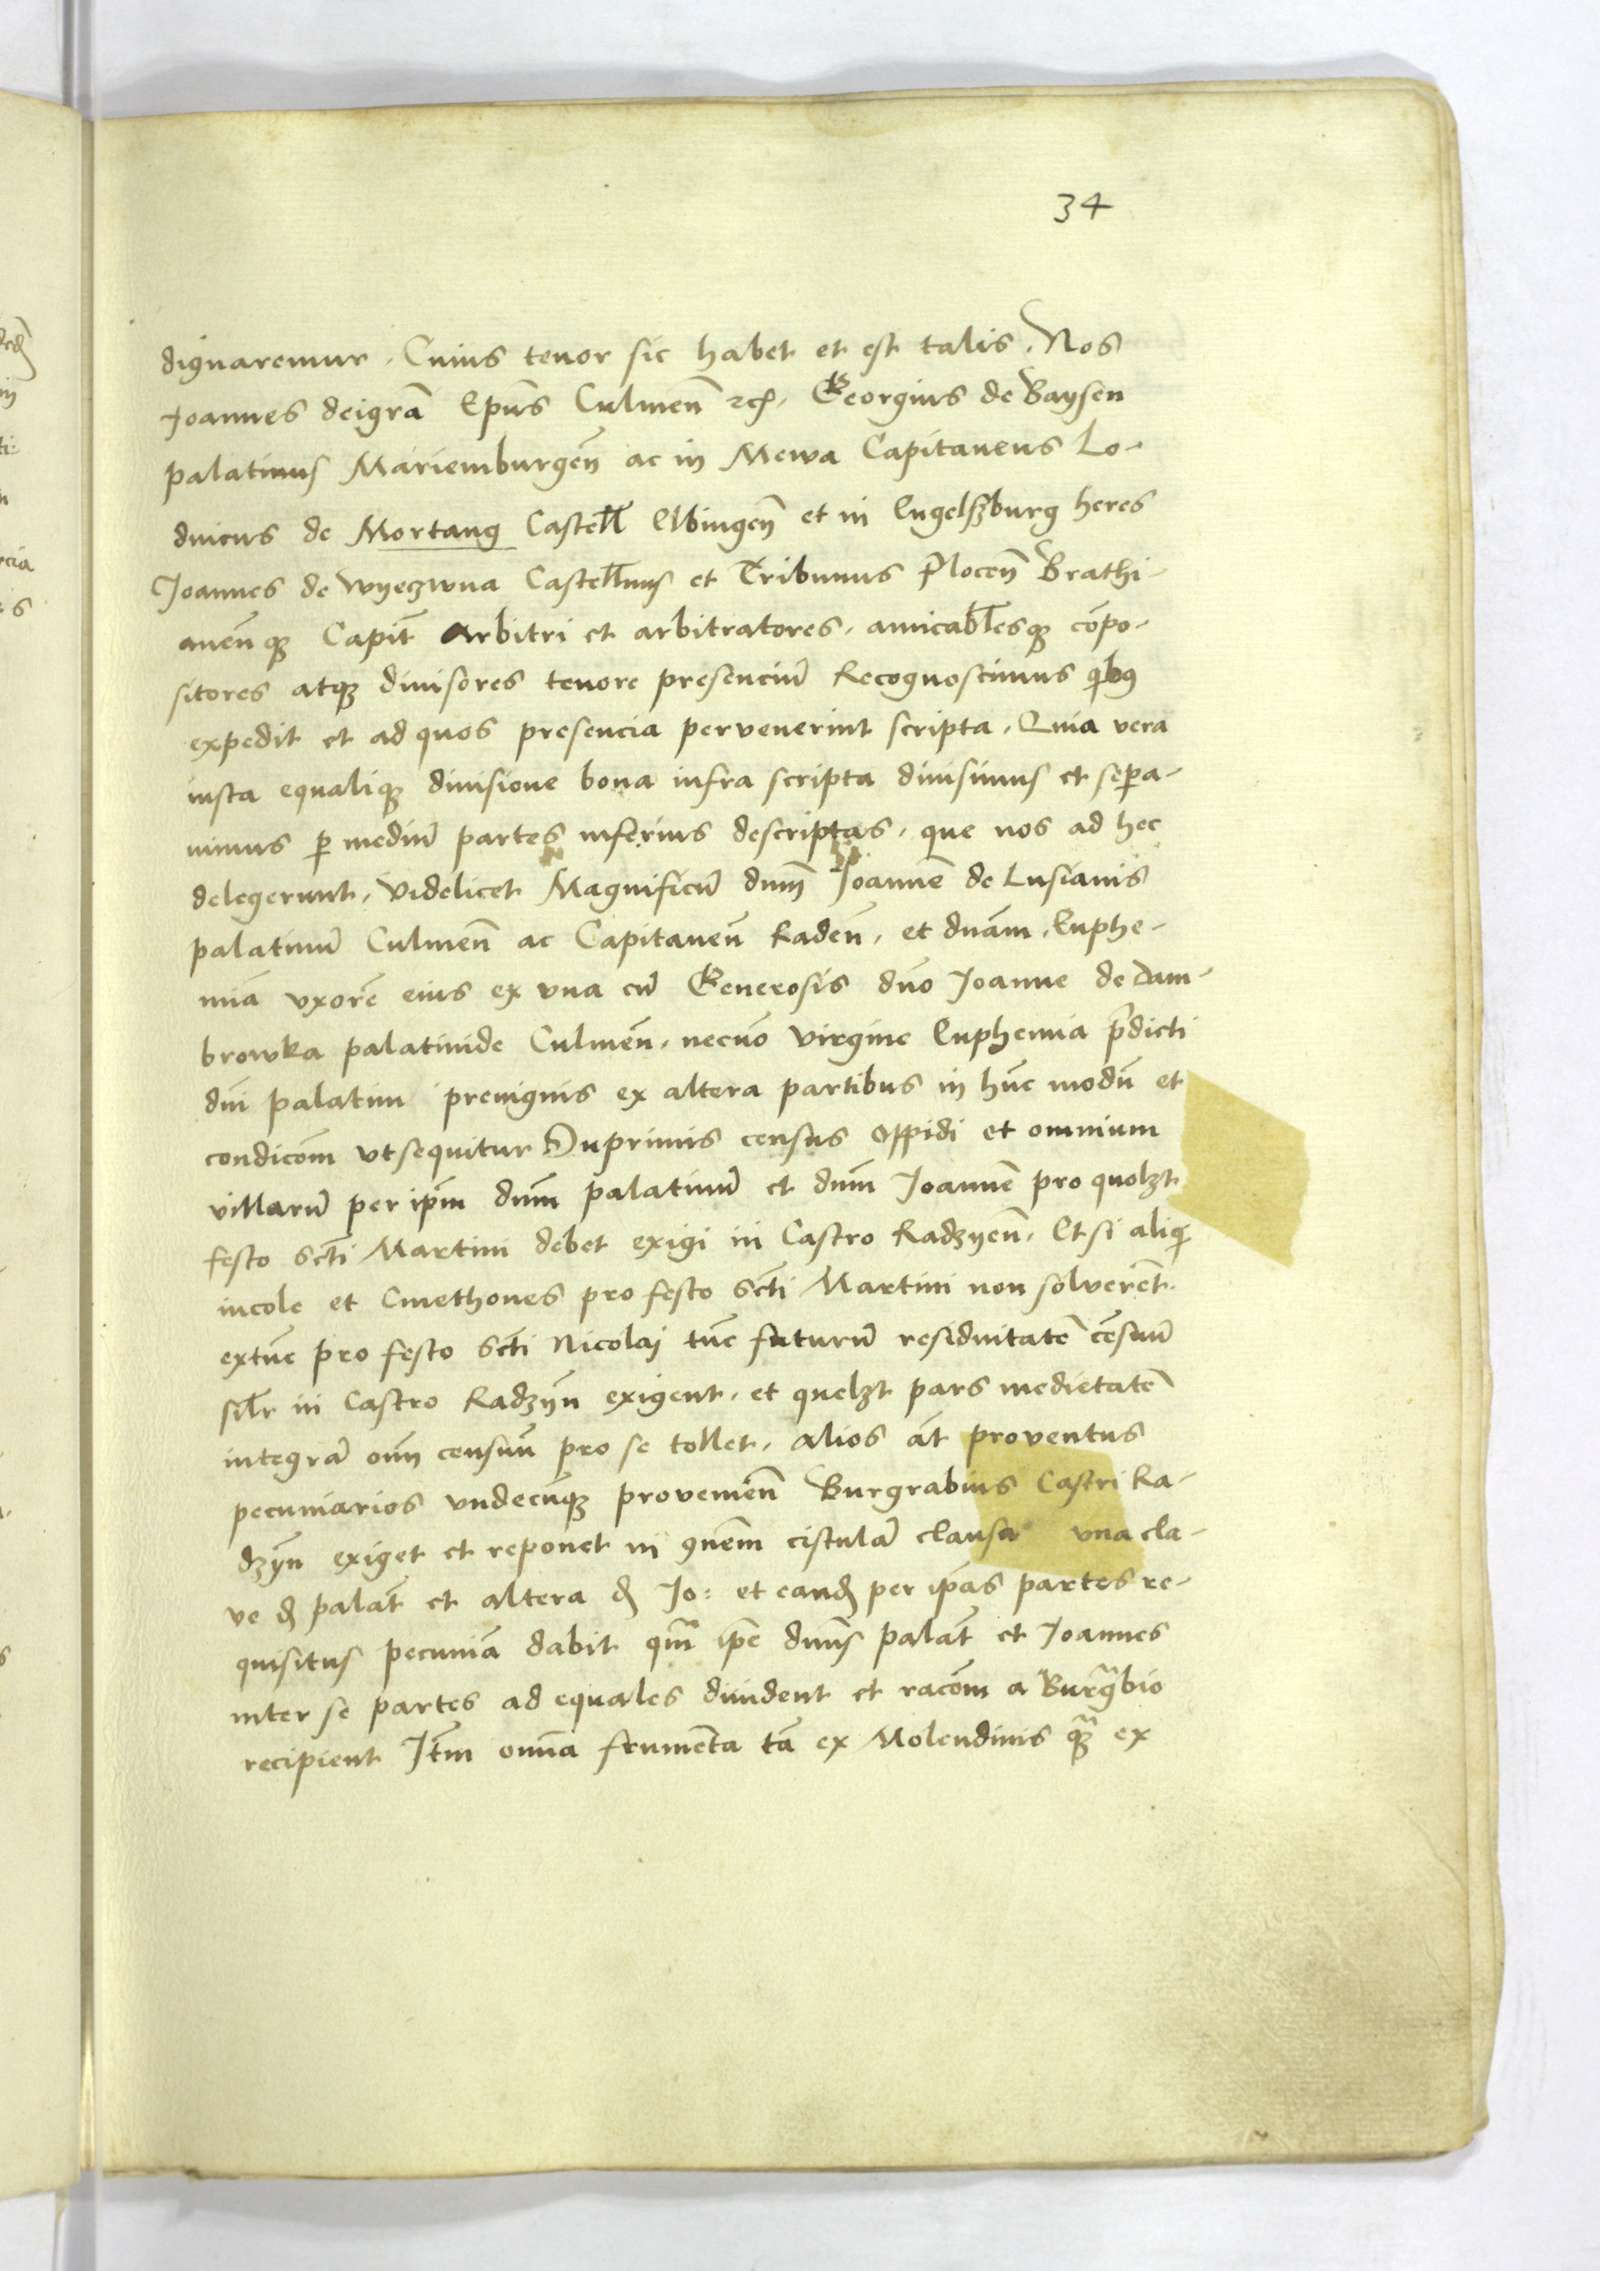 34
dignaremur. Cuius tenor sic habet et est talis. Nos
Joannes deigrā Epūs Culmeñ ꝛcꝭ. Georgius de Baysen
palatinus Mariemburgeñ ac in Mewa Capitaneus Lo-
duicus de Mortang Castell̄ Elbingeñ et in Engelszburg heres
Joannes de Wyeczwna Castell̄nus et Tribunus Ploceñ Brathi-
aneñ qꝫ Capit̄ Arbitri et arbitratores. amicabl̄esqꝫ cōpo-
sitores atqꝫ diuisores tenore presenciū Recognoscimus qibꝯ
expedit et ad quos presencia pervenerint scripta. Quia vera
iusta equaliqꝫ diuisione bona infra scripta diuisimus et sepa-
uimus ꝑ mediū partes inferius descriptas. que nos ad hec
delegerunt. Videlicet Magnificū dnm̄ Joannē de Lusianis
palatinū Culmeñ ac Capitaneū Radeñ. et dnām. Euphe-
miā vxorē eius ex vna cū Generosis dn̄o Joanne de Dam-
browka palatinide Culmeñ. necnō virgine Euphemia p̄dicti
dni palatini preuignis ex altera partibus in hūc modū et
condicōm vtsequitur Inprimis census Oppidi et omnium
villarū per ip̄m dnm̄ palatinū et dnm̄ Joannē pro quolꝫt
festo Scti Martini debet exigi in Castro Radzyeñ. Et si aliqi
incole et Cmethones pro festo Scti Martini non solverēt.
extūc pro festo Scti Nicolaj tūc futurū residuitatē cēsuū
silr̄ in Castro Radzyn̄ exigent. et quelꝫt pars medietatē
integrā om̄ censuū pro se tollet. Alios āt proventus
pecuniarios vndecūqꝫ provenieñ Burgrabius Castri Ra-
dzyn̄ exiget et reponet in ꝯnem̄ cistulā clausā vna cla-
ve d̄ palat̄ et altera d̄ Jo: et eand̄ per ip̄as partes re-
quisitus pecuniā dabit qm̄ ip̄e dn̄us palat̄ et Joannes
inter se partes ad equales diuident et racōm a Burgrabio
recipient Jtm̄ omīa frumēta tā ex Molendinis qꝫ̄ ex